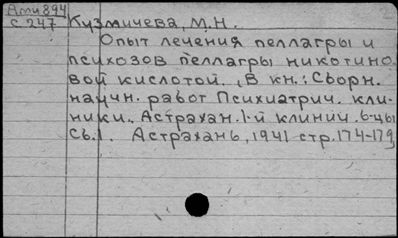 Ами894
с. 247 Кузмичева, М.Н.
Опыт лечения пеллагры и
психозов пеллагры никотино-
вой кислотой. , В кн.: Сборн.
научн. работ Психиатрич. кли-
ники., Астрахан. 1-й клинич. б-цы
Сб.1. Астрахань, 1941 стр. 174-179